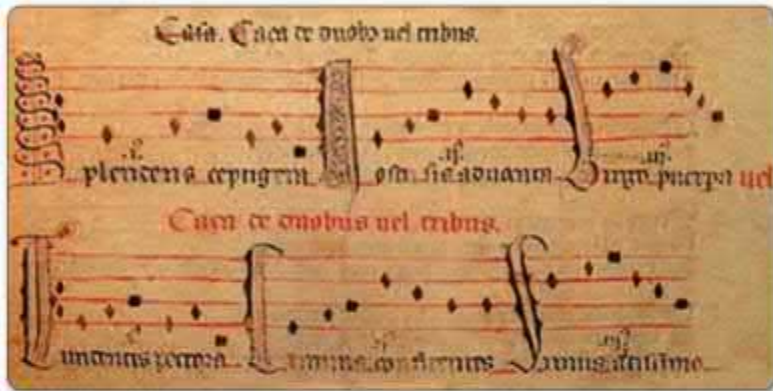 Caça de duobus uel tribus.
plendens ceptigera ostri sis aduocata Uirgo puerpera uel
Caça de duobus uel tribus.
undentes pectora Crimina confitentes Simus altissimo